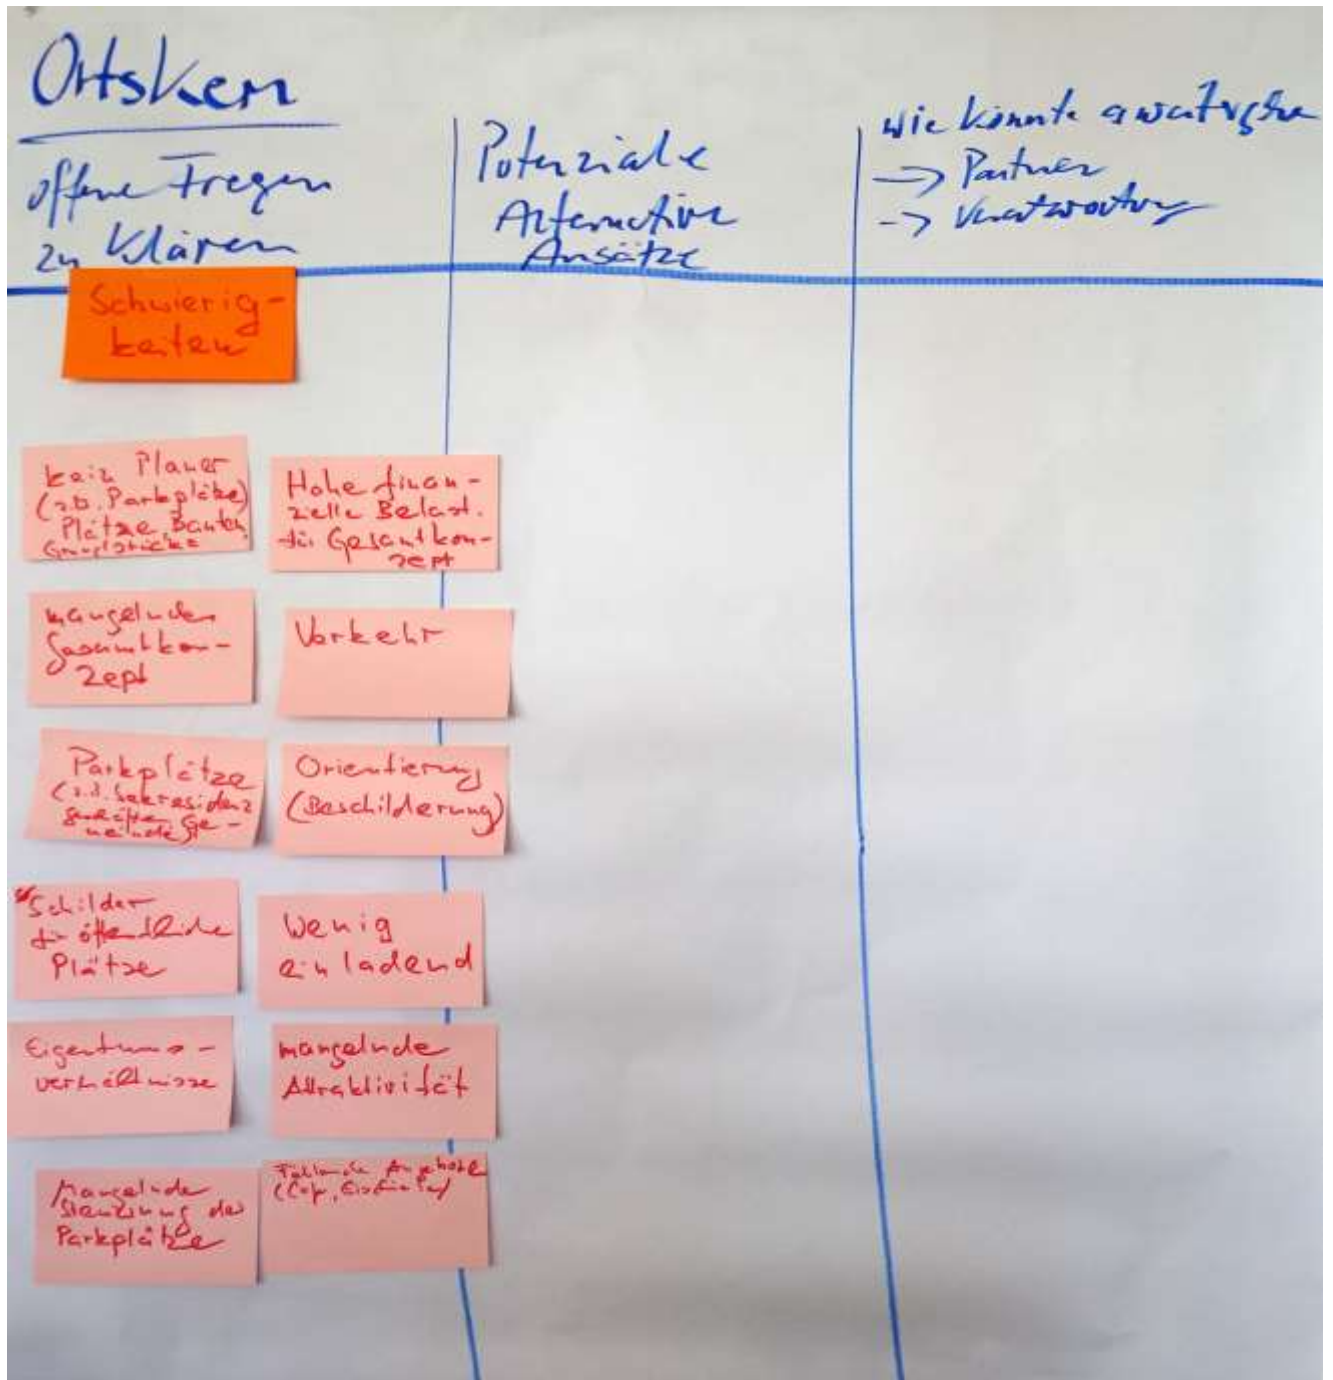 Ortskern
offene Fragen
zu klären
Potenziale
Alternative
Ansätze
wie könnte es weitergehen
-> Partner
-> Verantwortung
Schwierig-
keiten
kein Planer
(z.B. Parkplätze)
Plätze, Bauten,
Grundstücke
Hohe finan-
zielle Belast.
für Gesamtkon-
zept
mangelndes
Gesamtkon-
zept
Verkehr
Parkplätze
(z.B. Seeresidenz
Geschäfte, Ge-
meinde)
Orientierung
(Beschilderung)
Schilder
für öffentliche
Plätze
Wenig
einladend
Eigentums-
verhältnisse
mangelnde
Attraktivität
Mangelnde
der
Parkplätze
Fehlende Angebote
(Cafe, Eisdiele)